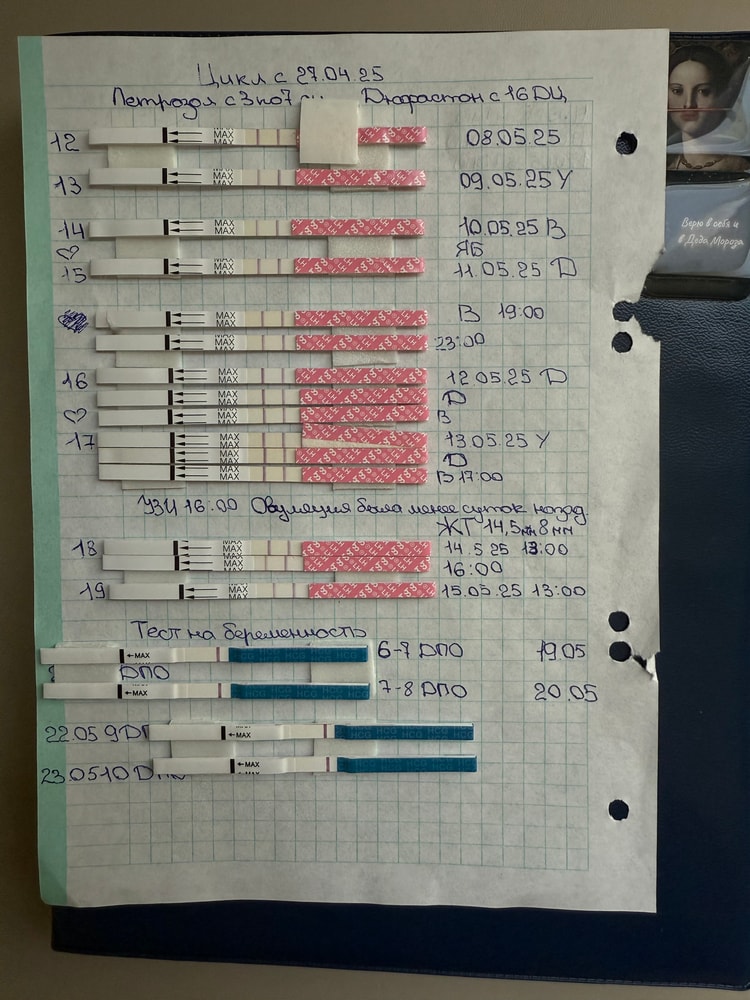 Цикл с 27.04.25
Летрозол с 3 по 7 Дюфастон с 16 ДЦ
12 MAX MAX 08.05.25
13 MAX MAX 09.05.25 У
14 MAX MAX 10.05.25 В
ЯБ
15 MAX MAX 11.05.25 D
MAX MAX В 19:00
MAX MAX 23:00
16 MAX MAX 12.05.25 D
MAX MAX D
MAX MAX В
17 MAX MAX 13.05.25 У
MAX MAX D
MAX MAX В 17:00
УЗИ 16:00 Овуляция была менее суток назад.
ЖТ 14,5мм 8мм
18 MAX MAX 14.5.25 13:00
MAX MAX 16:00
19 MAX MAX 15.05.25 13:00
Тест на беременность
←MAX 6-7 ДПО 19.05
ДПО
←MAX 7-8 ДПО 20.05
22.05 9 ←MAX HCG HCG HCG
23.05 10 ←MAX
Верю в себя и
в Деда Мороза